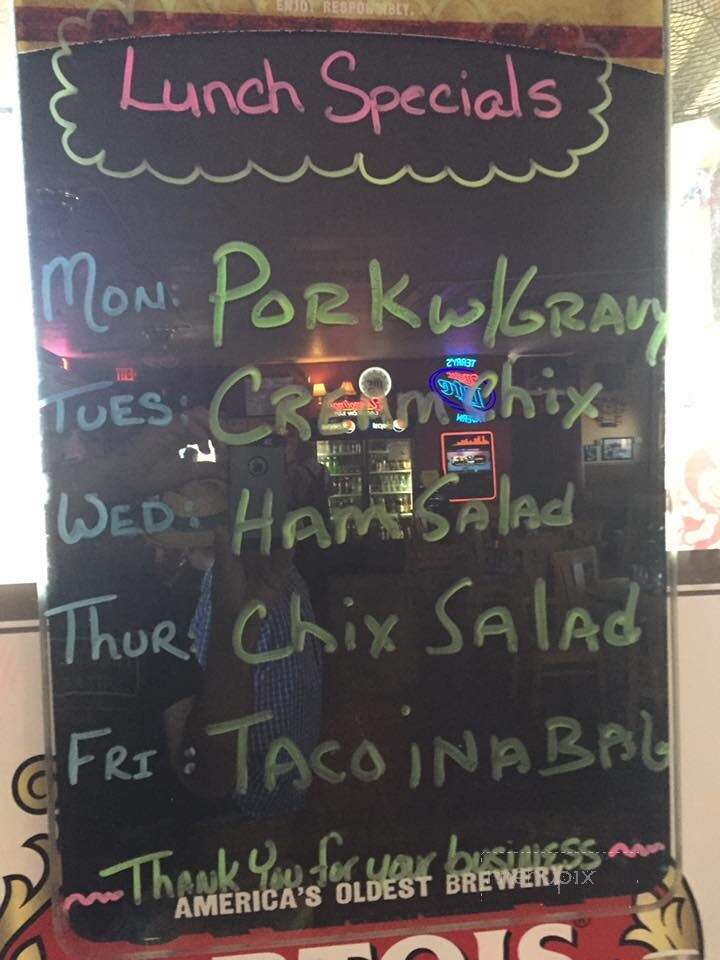 ENJOY RESPONSIBLY.
Lunch Specials
MON: PORK W/GRAVY
TUES: CREAM Chix
WED: HAM SALAD
THUR: Chix SALAd
FRI: TACO iN A BAG
~ Thank You for your business ~
AMERICA'S OLDEST BREWERY
TERRY'S
Lite
TAVERN
pepsi